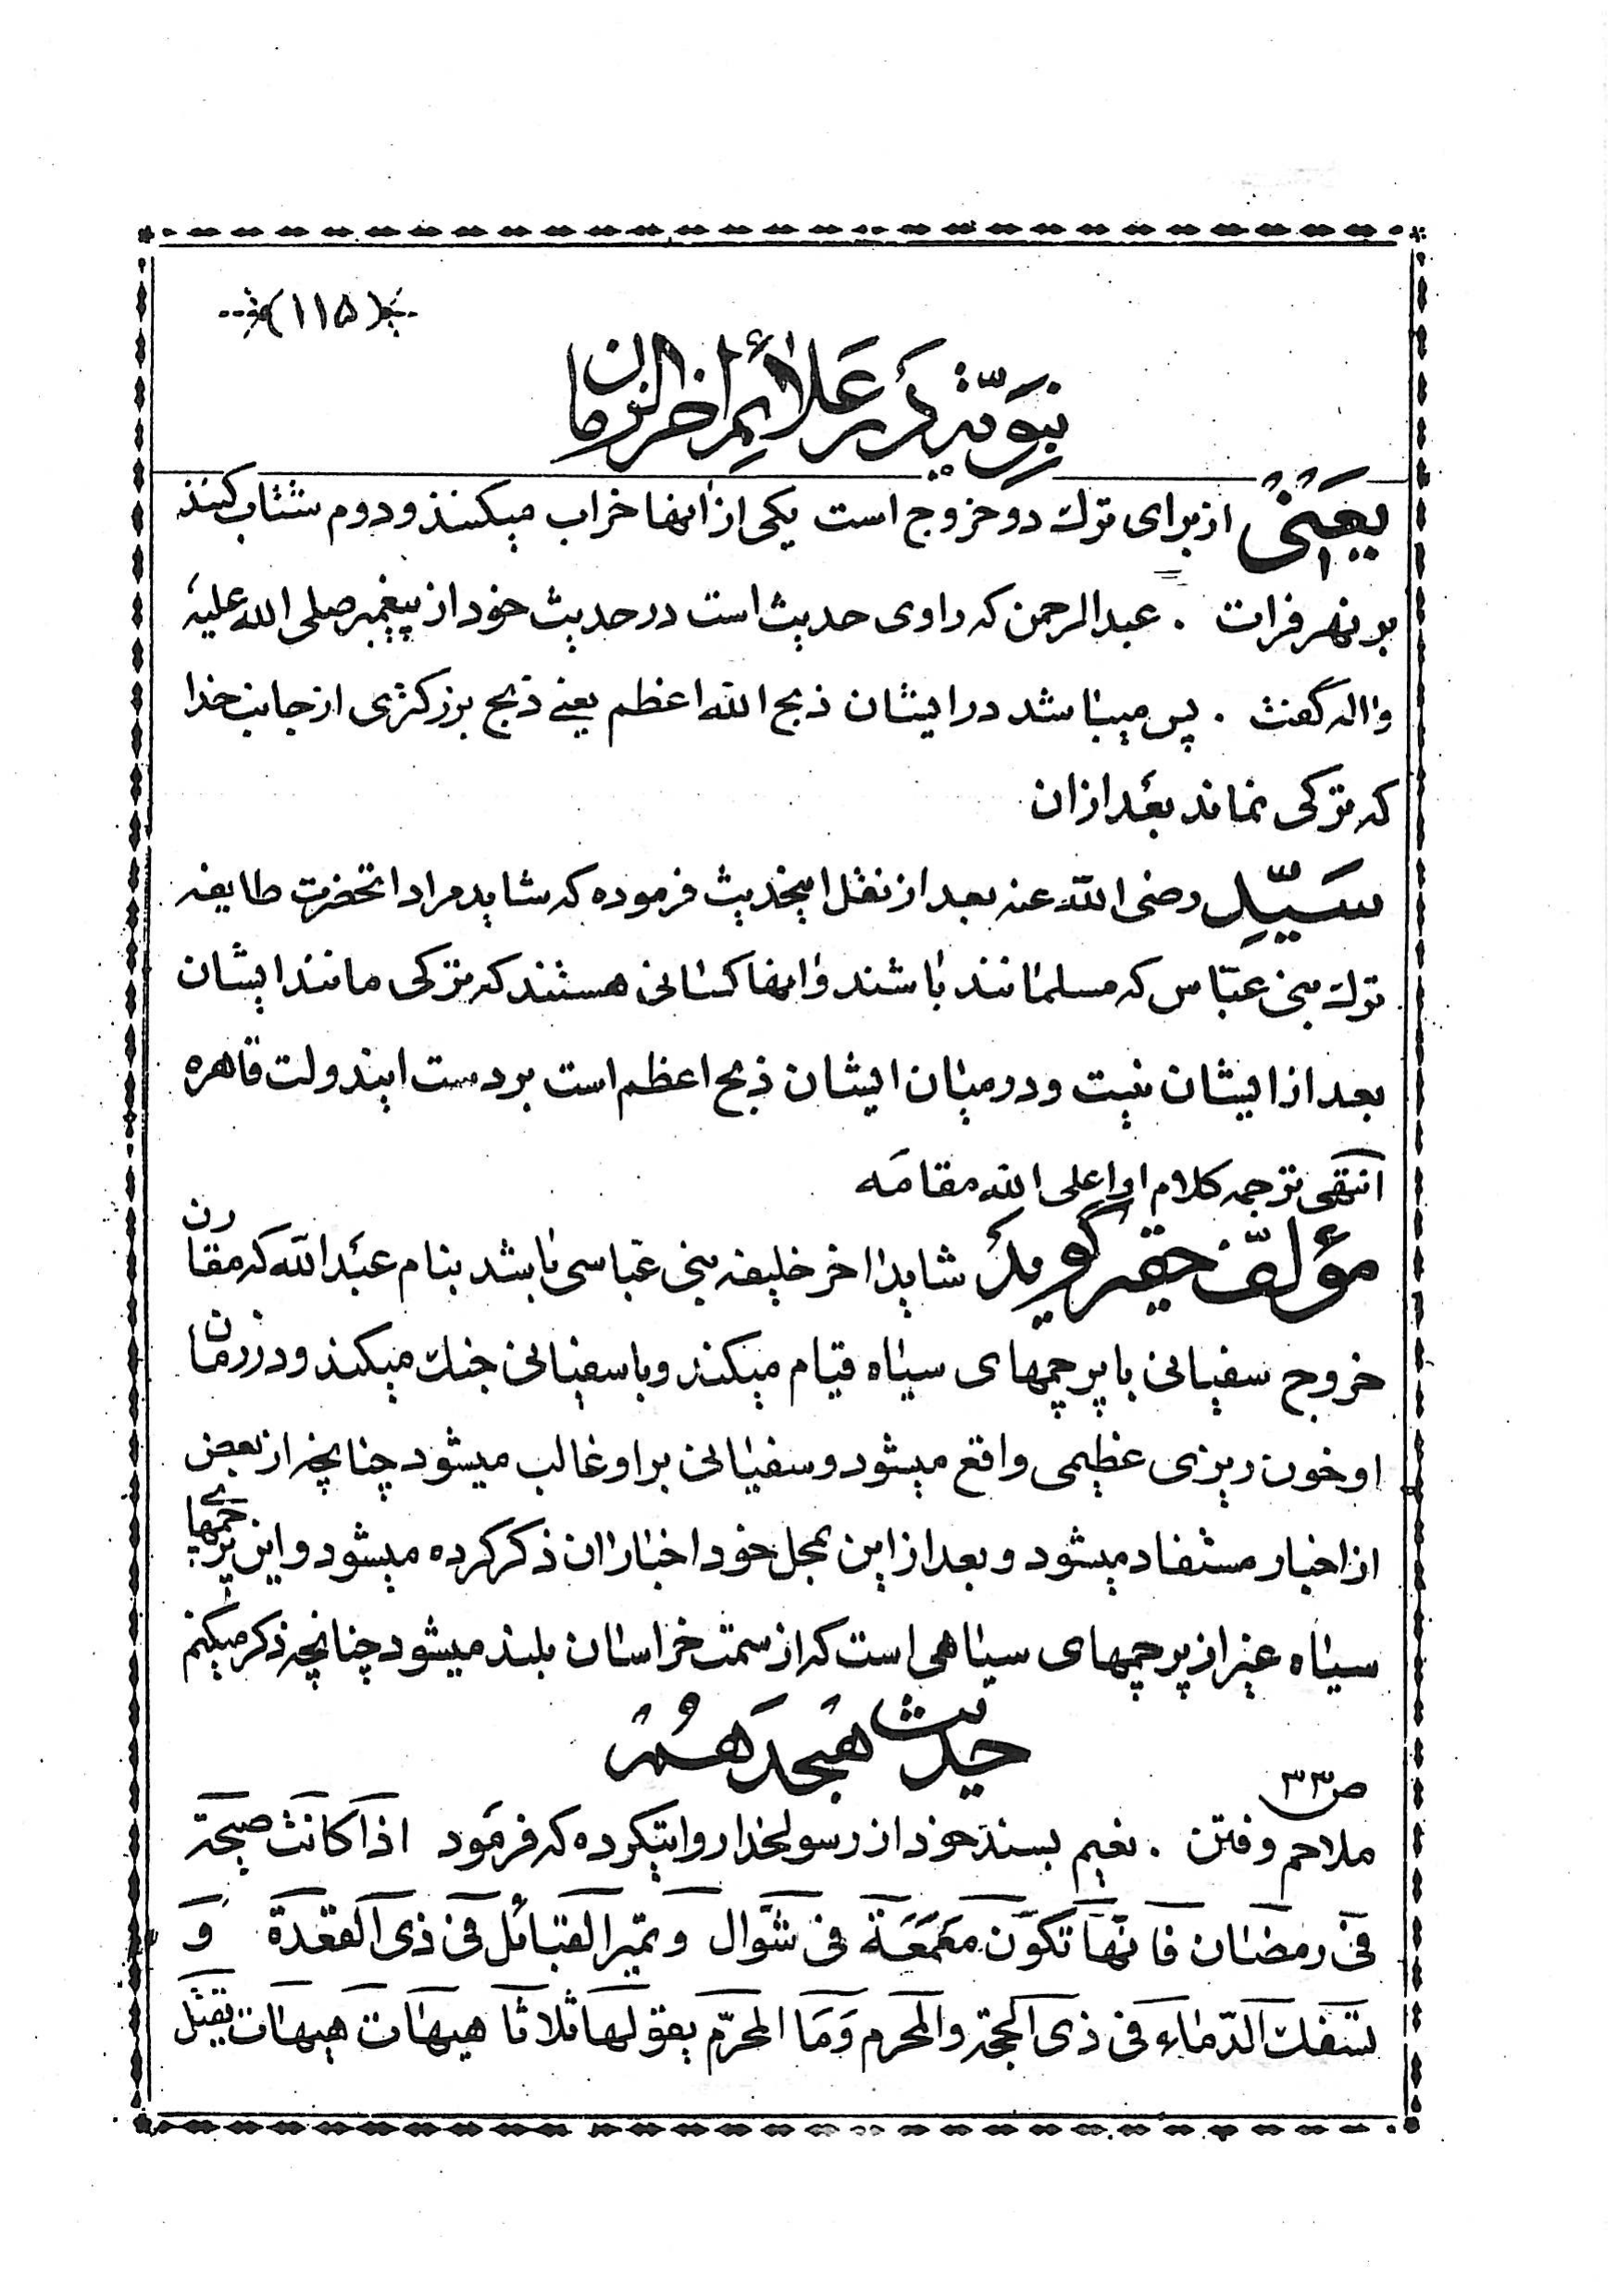 (۱۱۵)
نبویّه در علائم اخر الزمان
یعنی از برای ترك دو خروج است یکی از انها خراب میکنند و دوم شتاب کنند
بر نهر فرات . عبدالرحمن که راوی حدیث است در حدیث خود از پیغمبر صلی الله علیه
واله گفت . پس میباشد در ایشان ذبح الله اعظم یعنی ذبح بزرکتری از جانب خدا
که ترکی نماند بعد از ان
سیّد رضی الله عنه بعد از نقل اینحدیث فرموده که شاید مراد انحضرت طایفه
ترك بنی عبّاس که مسلمانند باشند و انها کسانی هستند که ترکی مانند ایشان
بعد از ایشان نیست و در میان ایشان ذبح اعظم است بر دست ایندولت قاهره
انتهی ترجمه کلام او اعلی الله مقامه
مؤلّف حقیر گوید شاید اخر خلیفه بنی عباسی باشد بنام عبدالله که مقارن
خروج سفیانی با پرچمهای سیاه قیام میکند و با سفیانی جنك میکند و در زمان
او خون ریزی عظیمی واقع میشود و سفیانی بر او غالب میشود چنانچه از بعض
از اخبار مستفاد میشود و بعد از این بمحل خود اخبار ان ذکر کرده میشود و این پرچمهای
سیاه غیر از پرچمهای سیاهی است که از سمت خراسان بلند میشود چنانچه ذکر میکنم
حدیث هیجدهم
ص ۳۳
ملاحم و فتن . نعیم بسند خود از رسولخدا روایتکرده که فرمود اذا کانت صیحة
فی رمضان فانّها تکون معمعة فی شوّال و تمیر القبائل فی ذی القعدة و
تسفك الدّماء فی ذی الحجة و المحرم و ما المحرّم یقولها ثلاثا هیهات هیهات یقتل